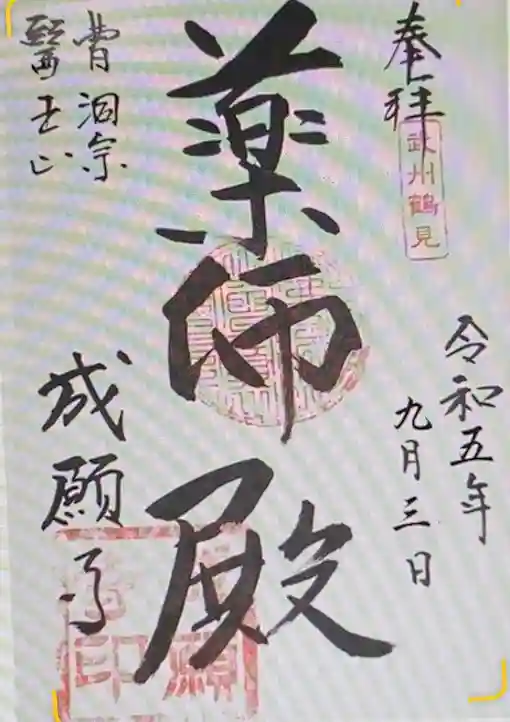 奉拝
武州鶴見
令和五年
九月三日
薬師殿
曹洞宗
醫王山
成願寺
願
印